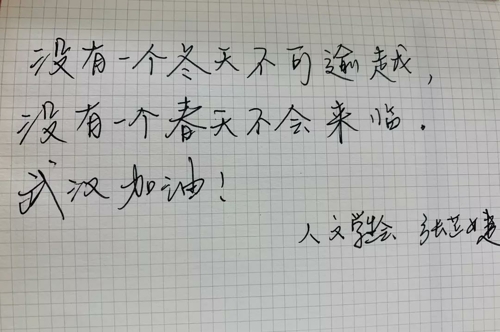 没有一个冬天不可逾越，
没有一个春天不会来临.
武汉加油！
人文学院 张芷婕